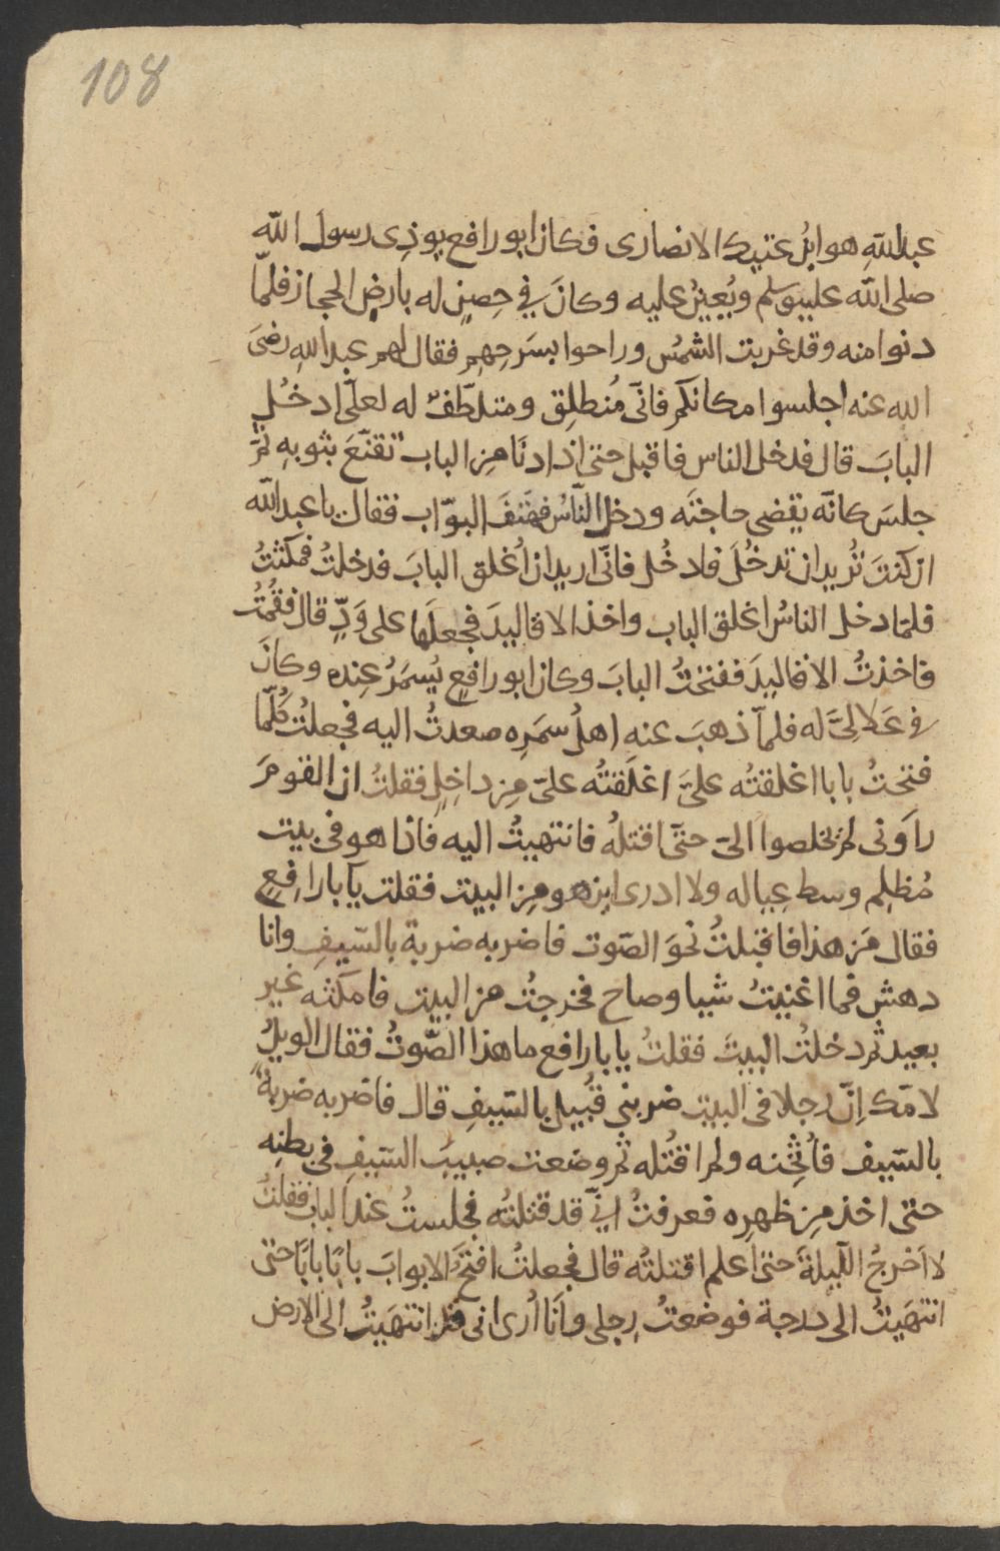 108
عبدُاللهِ هو ابنُ عتيك الانصارى فكان ابو رافع يوذِى رسولَ الله
صلى الله عليه وسلم ويُعِينُ عليه وكانَ في حِصنٍ له بارضِ الحجاز فلمّا
دنوا منه وقد غربت الشمسُ وراحوا بسَرحِهِم فقال لهم عبد اللهِ رضىَ
الله عنه اجلسوا مكانكم فانّى مُنطلِق ومتلطّفٌ له لعلّى ادخُل
البابَ قال فدخل الناس فاقبل حتى اذا دنَا مِن الباب تقنّعَ بثوبهِ ثمّ
جلسَ كانّه يقضى حاجتَه ودخل النّاسُ فهَتفَ البوّاب فقال يا عبد الله
ان كنتَ تُريد ان تدخُلَ فادخُل فانّى اريد ان اُغلق البابَ فدخلتُ فمكثتُ
فلمّا دخل الناسُ اغلق الباب واخذ الاقاليدَ فجعلَها على وَدٍّ قال فقُمتُ
فاخذتُ الاقاليدَ ففتحتُ البابَ وكان ابو رافعٍ يُسمَرُ عِنده وكانَ
فى عَلالِىَّ له فلمّا ذهبَ عنه اهلُ سمَرِه صعدتُ اليه فجعلتُ كُلّما
فتحتُ بابا اغلقتُه علىَّ اغلَقتُه علىّ مِن داخِلٍ فقلتُ ان القومَ
راَونى لم يخلصوا الىّ حتّى اقتلهُ فانتهيتُ اليه فاذا هو فى بيت
مُظلِم وسط عِياله ولا ادرى اين هو مِن البيت فقلت يا با رافِعٍ
فقال مَن هذا فاقبلتُ نحوَ الصّوت فاضربه ضربة بالسّيفِ وانا
دهش فما اغنيتُ شيا وصاح فخرجتُ من البيت فامكثه غير
بعيد ثم دخلتُ البيتَ فقلتُ يا با رافع ما هذا الصّوتُ فقال الويلُ
لامّك اِنّ رجلا فى البيت ضربنى قُبيل بالسّيفِ قال فاضربه ضربةً
بالسّيف فاُثخِنه ولم اقتُله ثم وضعت صبيبَ السّيفِ فى بطنِه
حتى اخذ مِن ظهرِه فعرفتُ انّى قد قتلتُه فجلستُ عند الباب فقلتُ
لا اَخرجُ اللّيلةَ حتى اعلم اقتلتُه قال فجعلتُ افتحُ الابوابَ بابًا بابًا حتى
انتهَيتُ الى درجة فوضعتُ رِجلى وانَا اُرى انى قد انتهَيتُ الى الارض